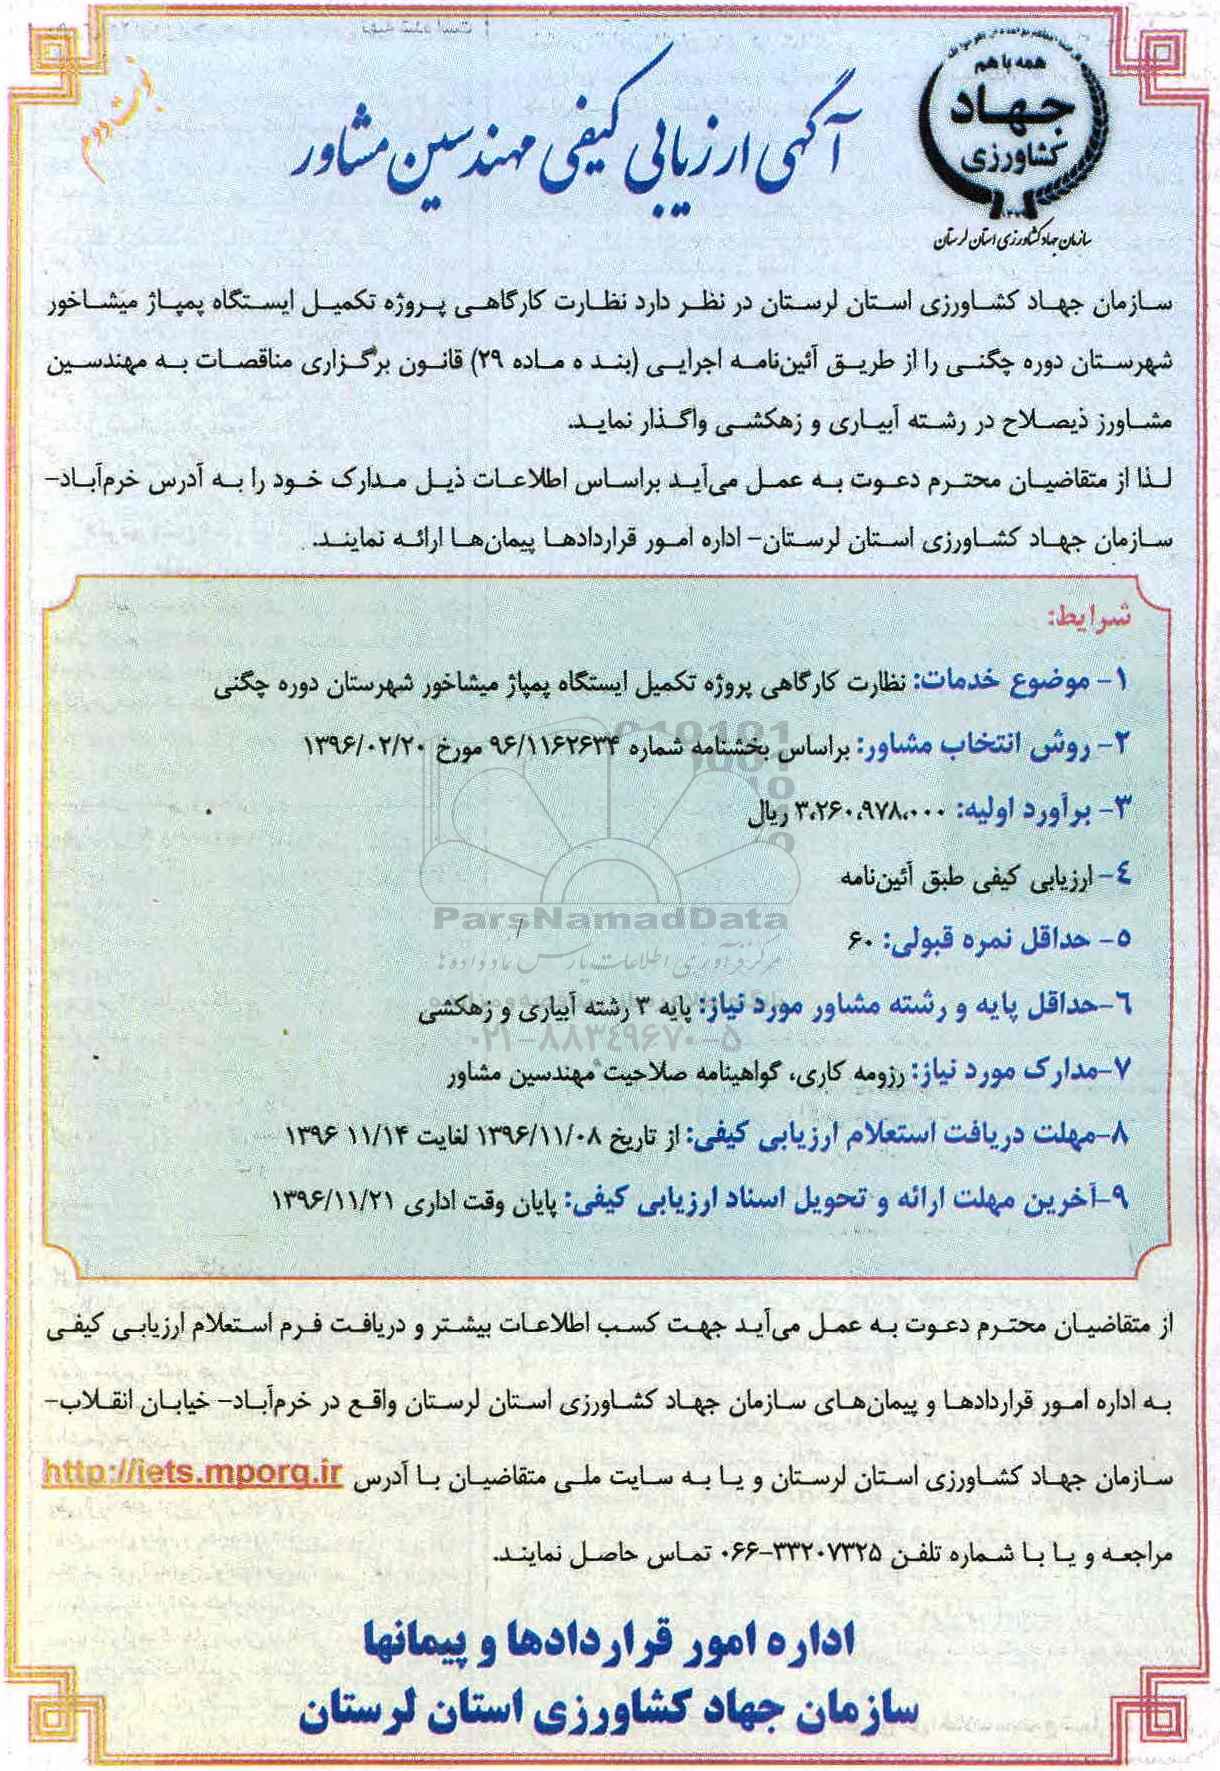 همه با هم
جهاد
کشاورزی
سازمان جهاد کشاورزی استان لرستان
نوبت دوم
آگهی ارزیابی کیفی مهندسین مشاور
سازمان جهاد کشاورزی استان لرستان در نظر دارد نظارت کارگاهی پروژه تکمیل ایستگاه پمپاژ میشاخور
شهرستان دوره چگنی را از طریق آئین‌نامه اجرایی (بند ه ماده ۲۹) قانون برگزاری مناقصات به مهندسین
مشاورز ذیصلاح در رشته آبیاری و زهکشی واگذار نماید.
لذا از متقاضیان محترم دعوت به عمل می‌آید براساس اطلاعات ذیل مدارک خود را به آدرس خرم‌آباد-
سازمان جهاد کشاورزی استان لرستان- اداره امور قراردادها پیمان‌ها ارائه نمایند.
شرایط:
۱- موضوع خدمات: نظارت کارگاهی پروژه تکمیل ایستگاه پمپاژ میشاخور شهرستان دوره چگنی
۲- روش انتخاب مشاور: براساس بخشنامه شماره ۹۶/۱۱۶۲۶۳۴ مورخ ۱۳۹۶/۰۲/۲۰
۳- برآورد اولیه: ۳،۲۶۰،۹۷۸،۰۰۰ ریال
۴- ارزیابی کیفی طبق آئین‌نامه
ParsNamadData
۵- حداقل نمره قبولی: ۶۰
مرکز فرآوری اطلاعات پارس نماد داده‌ها
۶-حداقل پایه و رشته مشاور مورد نیاز: پایه ۳ رشته آبیاری و زهکشی
۰۲۱-۸۸۳۴۹۶۷۰-۵
۷-مدارک مورد نیاز: رزومه کاری، گواهینامه صلاحیت مهندسین مشاور
۸-مهلت دریافت استعلام ارزیابی کیفی: از تاریخ ۱۳۹۶/۱۱/۰۸ لغایت ۱۱/۱۴ ۱۳۹۶
۹-آخرین مهلت ارائه و تحویل اسناد ارزیابی کیفی: پایان وقت اداری ۱۳۹۶/۱۱/۲۱
از متقاضیان محترم دعوت به عمل می‌آید جهت کسب اطلاعات بیشتر و دریافت فرم استعلام ارزیابی کیفی
به اداره امور قراردادها و پیمان‌های سازمان جهاد کشاورزی استان لرستان واقع در خرم‌آباد- خیابان انقلاب-
سازمان جهاد کشاورزی استان لرستان و یا به سایت ملی متقاضیان با آدرس http://iets.mporg.ir
مراجعه و یا با شماره تلفن ۳۳۲۰۷۳۲۵-۰۶۶ تماس حاصل نمایند.
اداره امور قراردادها و پیمانها
سازمان جهاد کشاورزی استان لرستان